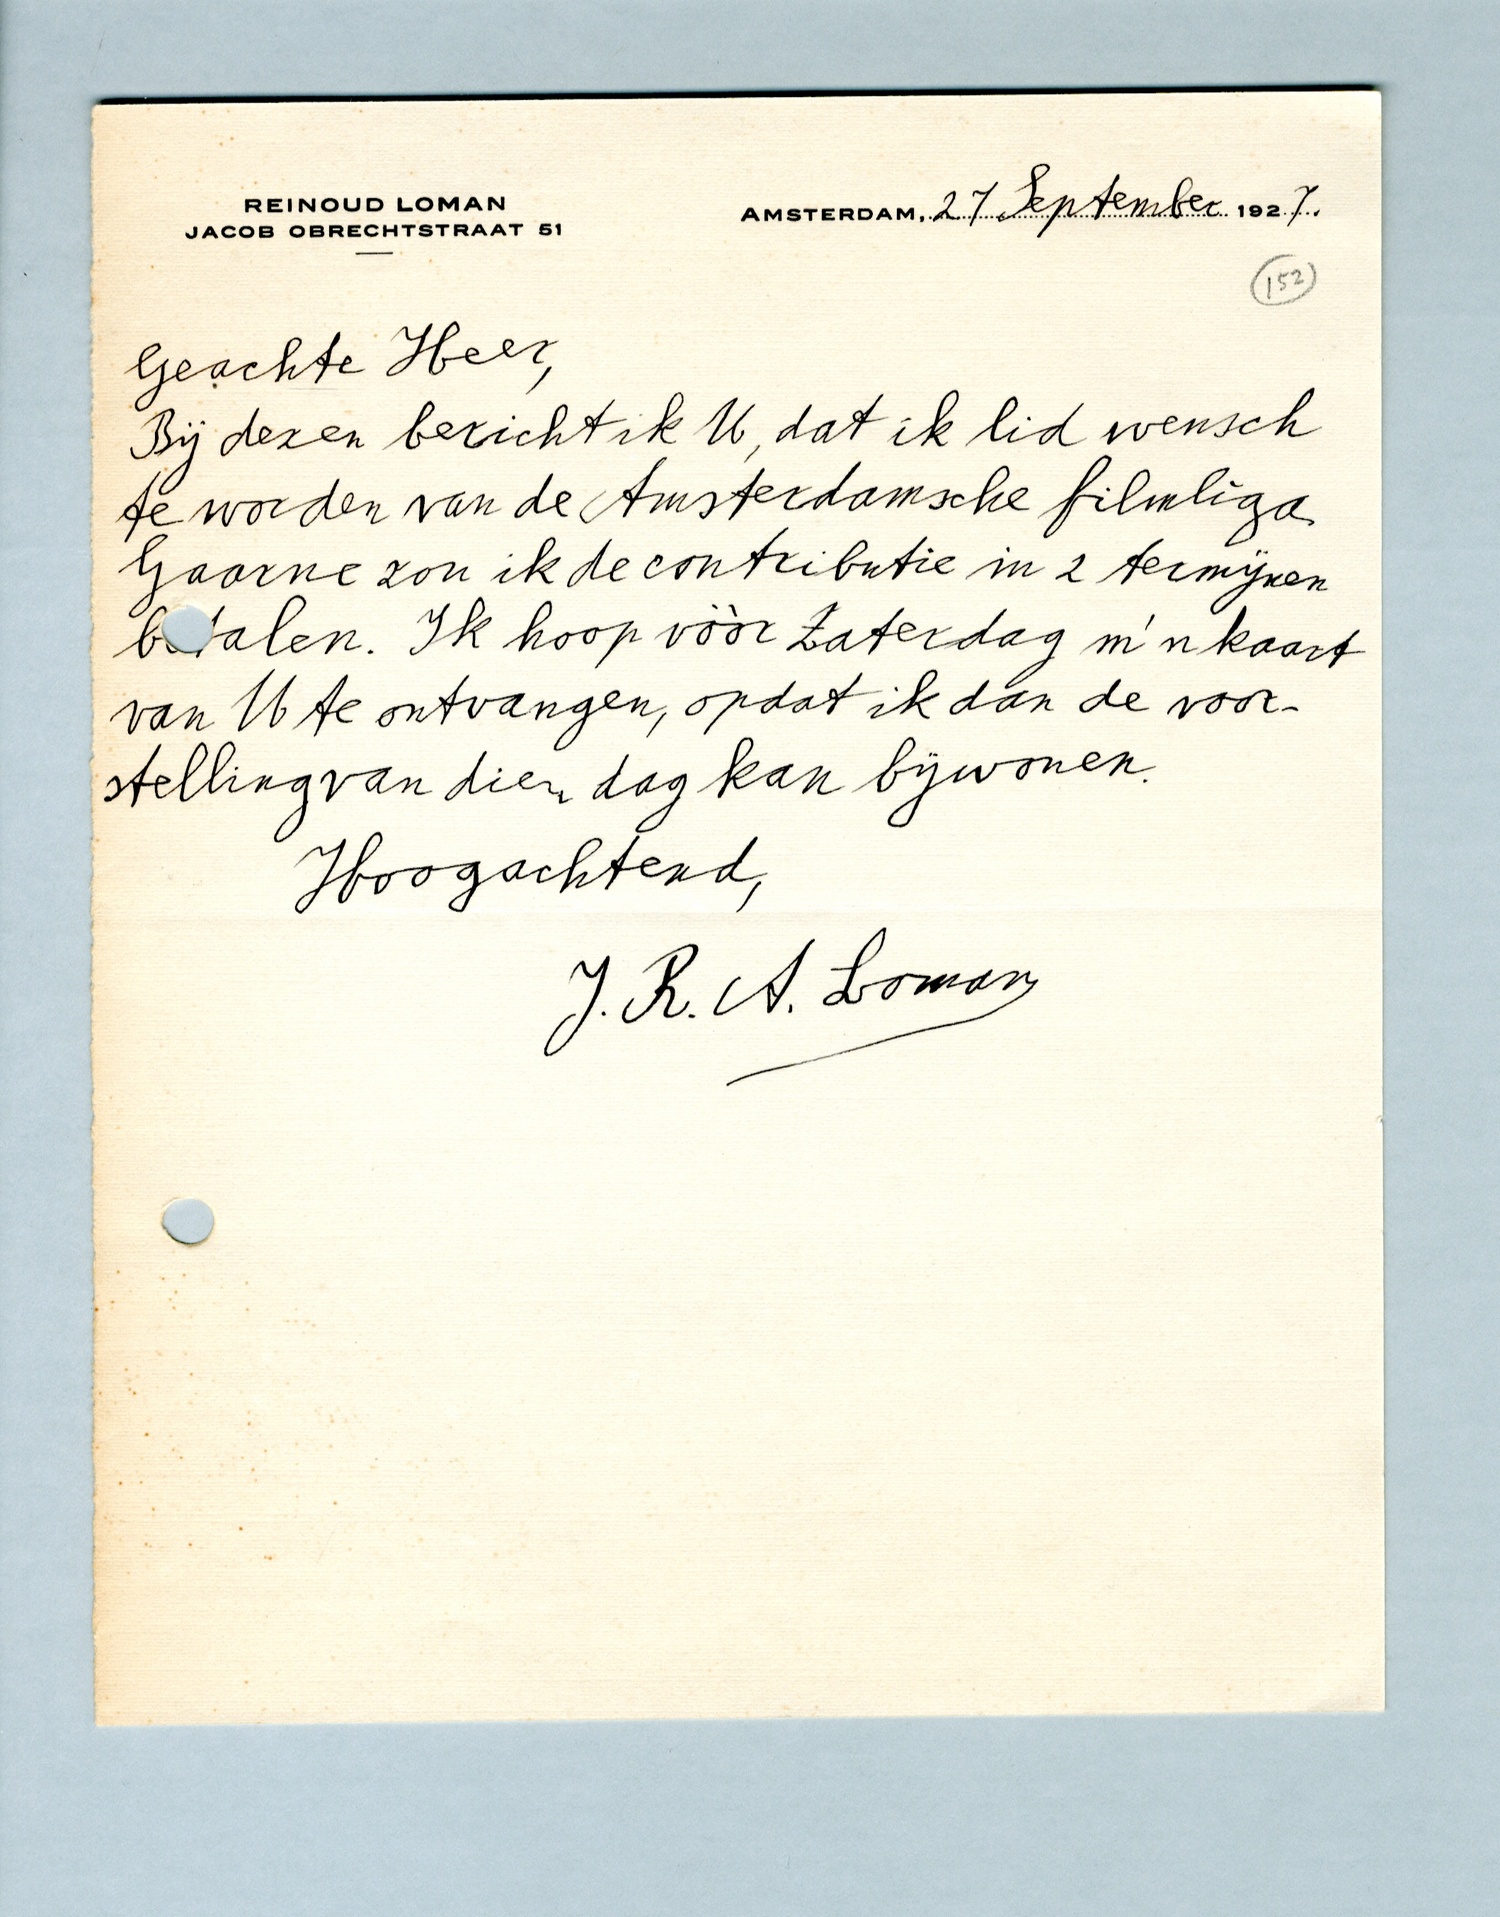 REINOUD LOMAN
JACOB OBRECHTSTRAAT 51
AMSTERDAM, 27 September 1927.
152
Geachte Heer,
Bij dezen bericht ik U, dat ik lid wensch
te worden van de Amsterdamsche filmliga
Gaarne zou ik de contributie in 2 termijnen
betalen. Ik hoop vòòr Zaterdag m'n kaart
van U te ontvangen, opdat ik dan de voor-
stelling van dien dag kan bijwonen.
Hoogachtend,
J. R. A. Loman